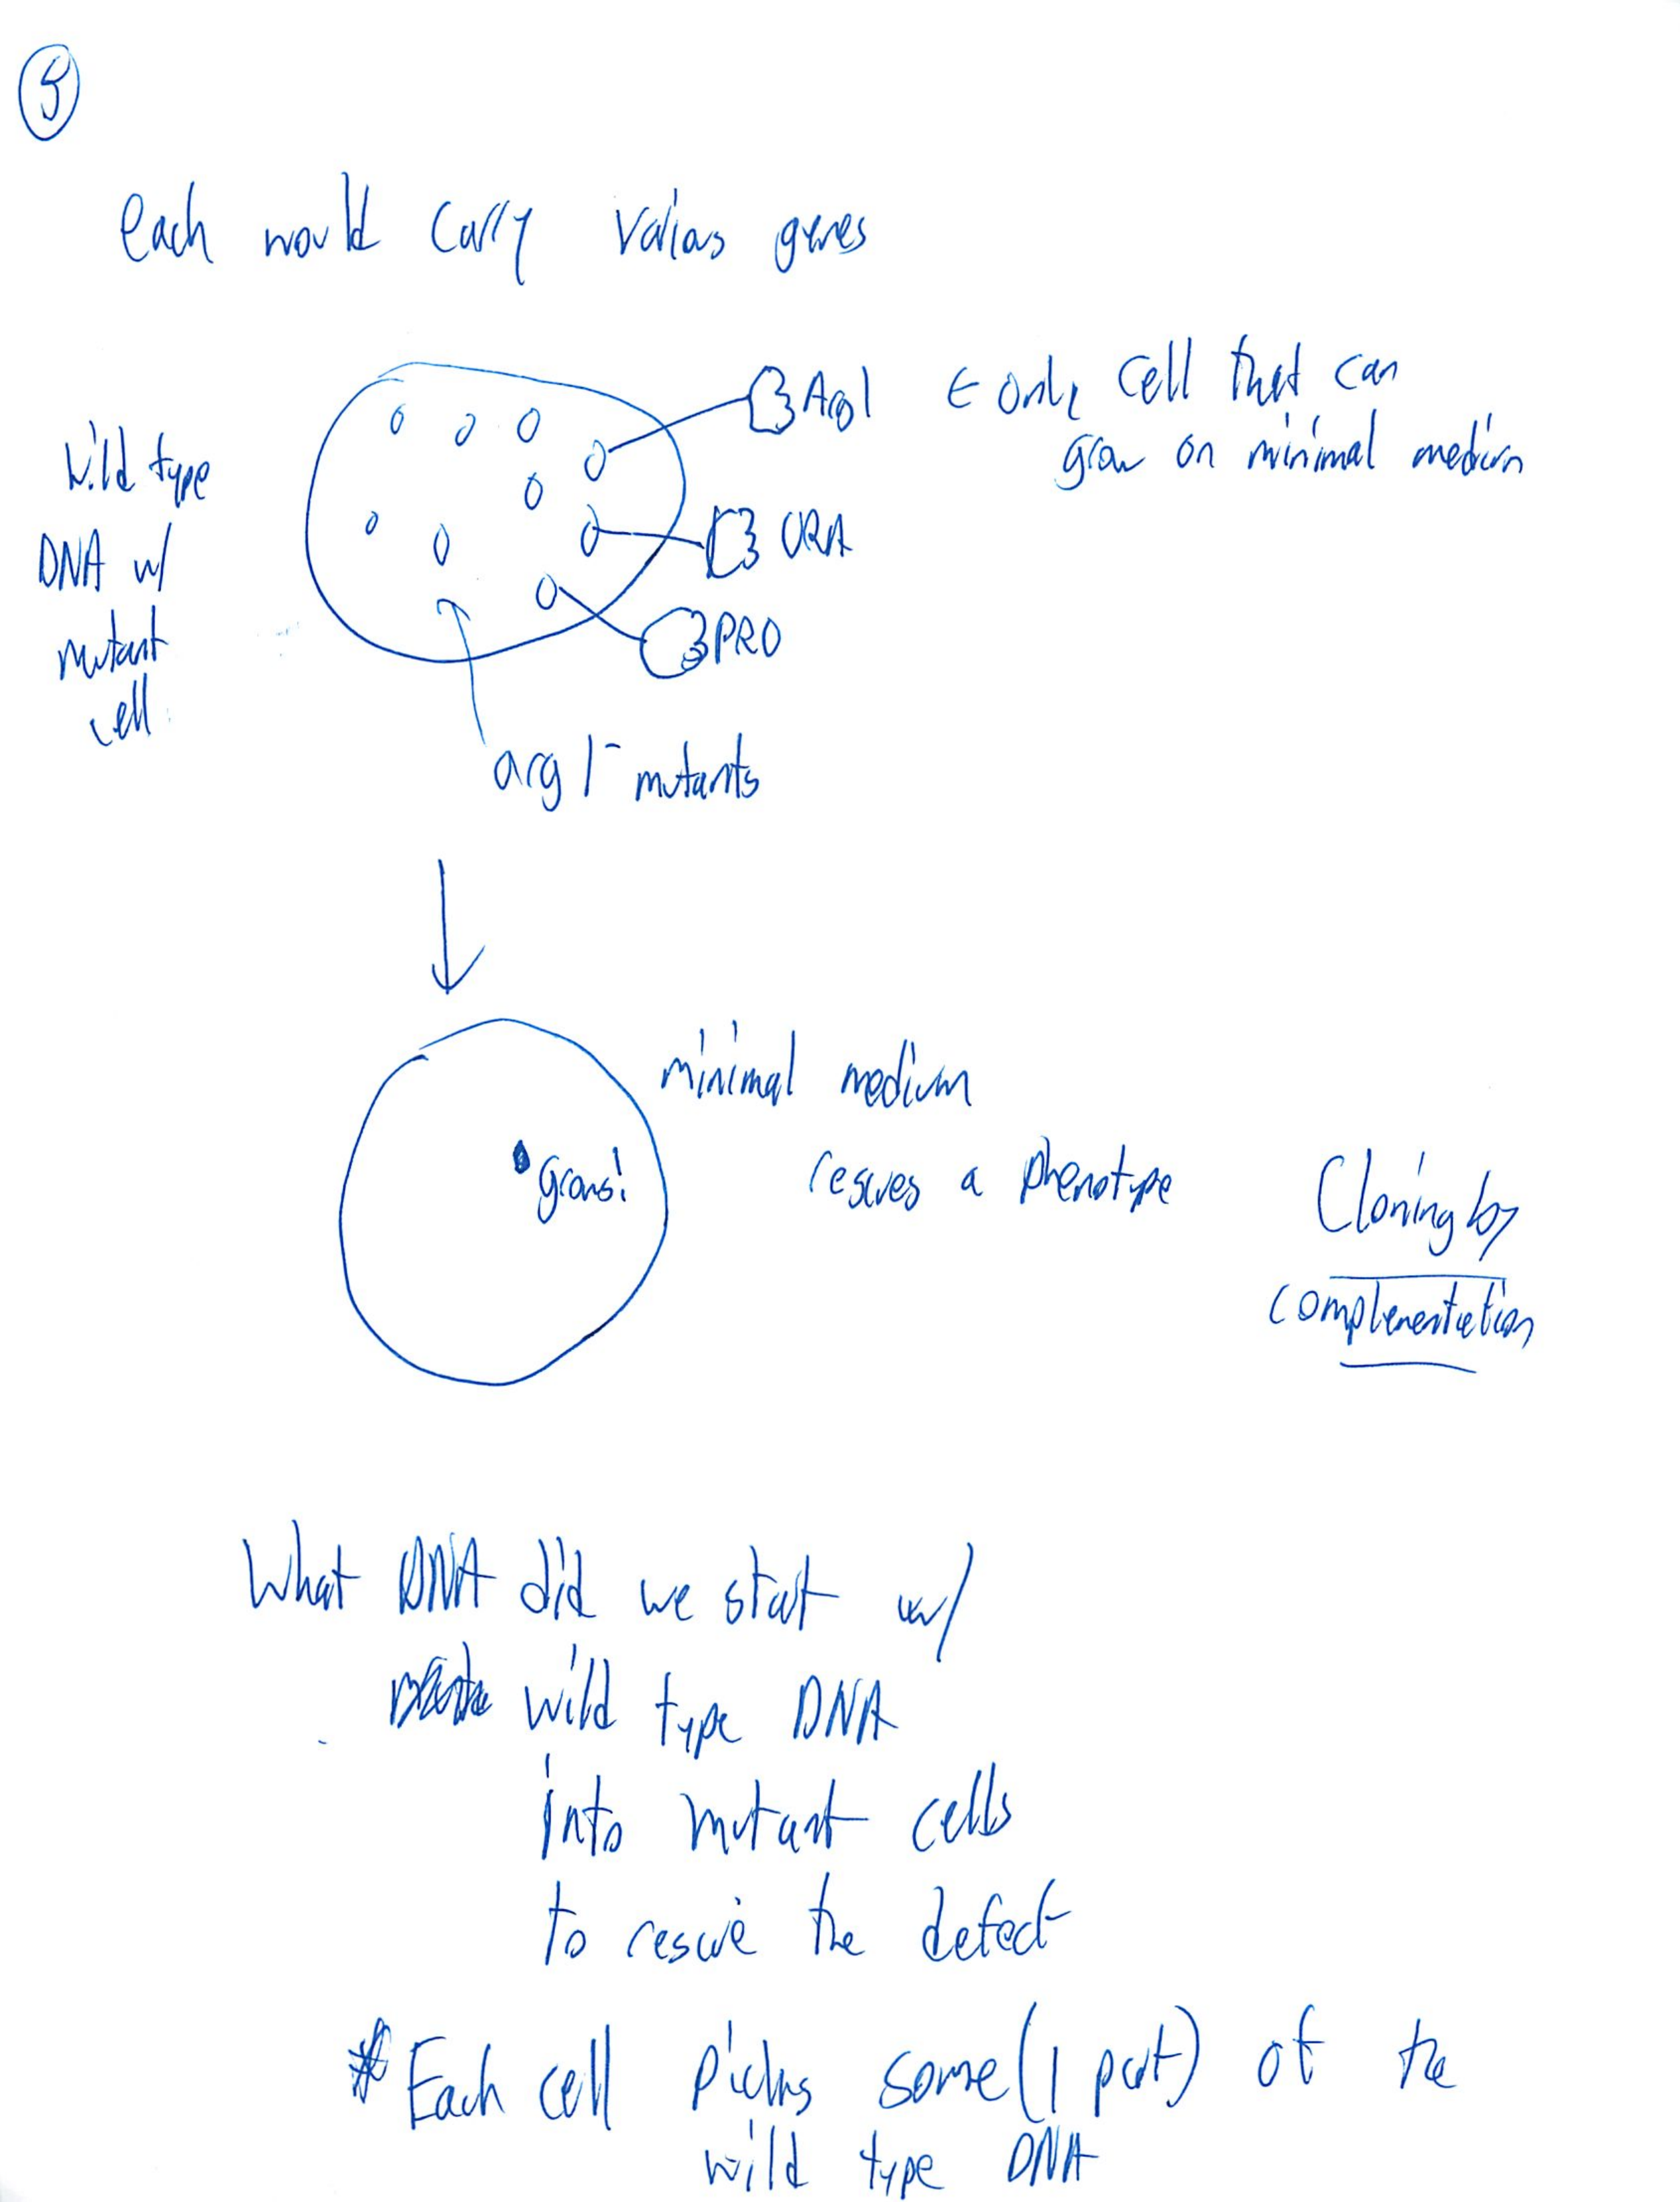 5
each would carry various genes
Wild type
DNA w/
mutant
cell
Arg1 ← only cell that can
grow on minimal medium
URA
PRO
arg 1⁻ mutants
minimal medium
grows!
rescues a phenotype
Cloning by
complementation
What DNA did we start w/
wild type DNA
into mutant cells
to rescue the defect
* Each cell picks some (1 part) of the
wild type DNA